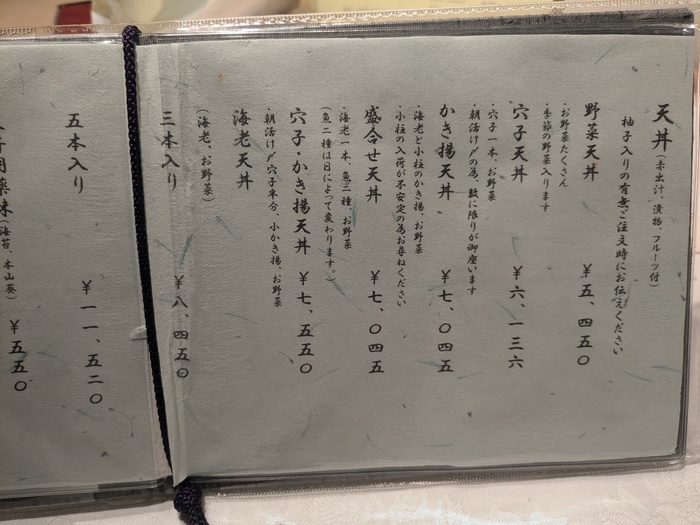 天丼（赤出汁、漬物、フルーツ付）
柚子入りの有無ご注文時にお伝えください
野菜天丼 ￥五、四五〇
・お野菜たくさん
・季節の野菜入ります
穴子天丼 ￥六、一三六
・穴子一本、お野菜
・朝活け〆の為、数に限りが御座います
かき揚天丼 ￥七、〇四五
・海老と小柱のかき揚、お野菜
・小柱の入荷が不安定の為お尋ねください
盛合せ天丼 ￥七、〇四五
・海老一本、魚二種、お野菜
（魚二種は日によって変わります。）
穴子・かき揚天丼 ￥七、五五〇
・朝活け〆穴子半分、小かき揚、お野菜
海老天丼
（海老、お野菜）
三本入り ￥八、四五〇
五本入り ￥一一、五二〇
用薬味（海苔、本山葵） ￥五五〇